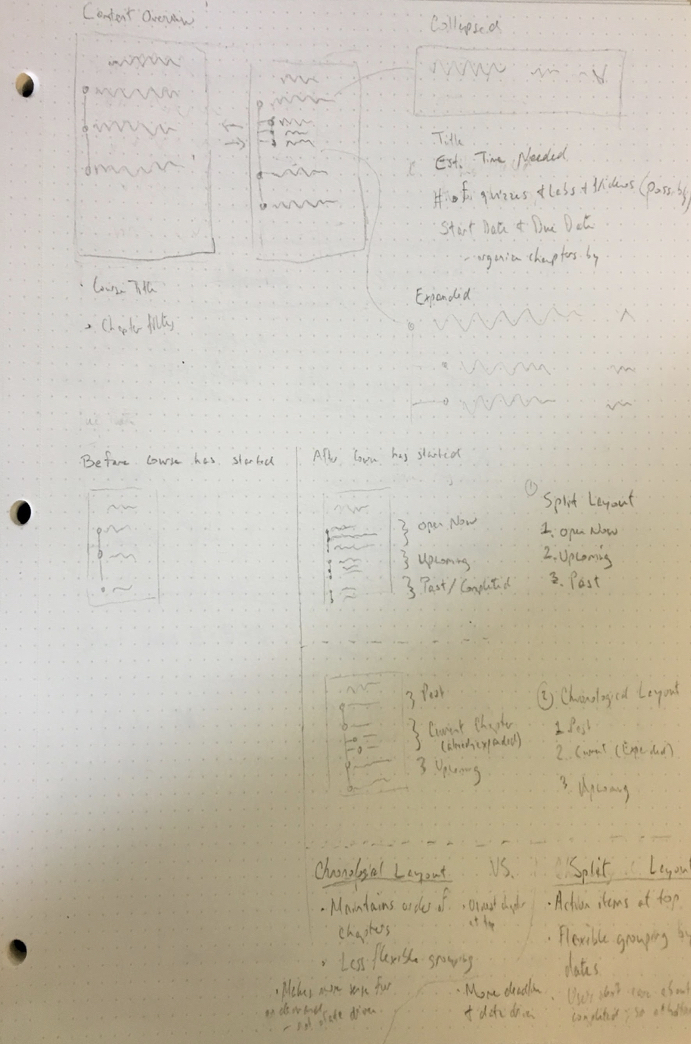 Content Overview
Collapsed
Title
Est. Time Needed
# of quizzes & Labs & Videos (poss.
Start Date & Due Date
- chapters by
Expanded
• Course Title
• Chapter titles
Before course has started
After course has started
Open Now
Upcoming
Past/Completed
① Split Layout
1. Open Now
2. Upcoming
3. Past
Past
Current Chapter
(already expanded)
Upcoming
② Chronological Layout
1. Past
2. Current (Expanded)
3. Upcoming
Chronological Layout VS. Split Layout
• Maintains order of
chapters
• Less flexible grouping
• Makes more sense for
on demand
- not date driven
at top
• More deadline
& date driven
• Action items at top
• Flexible grouping by
dates
• Users don't care about
completed, so at bottom